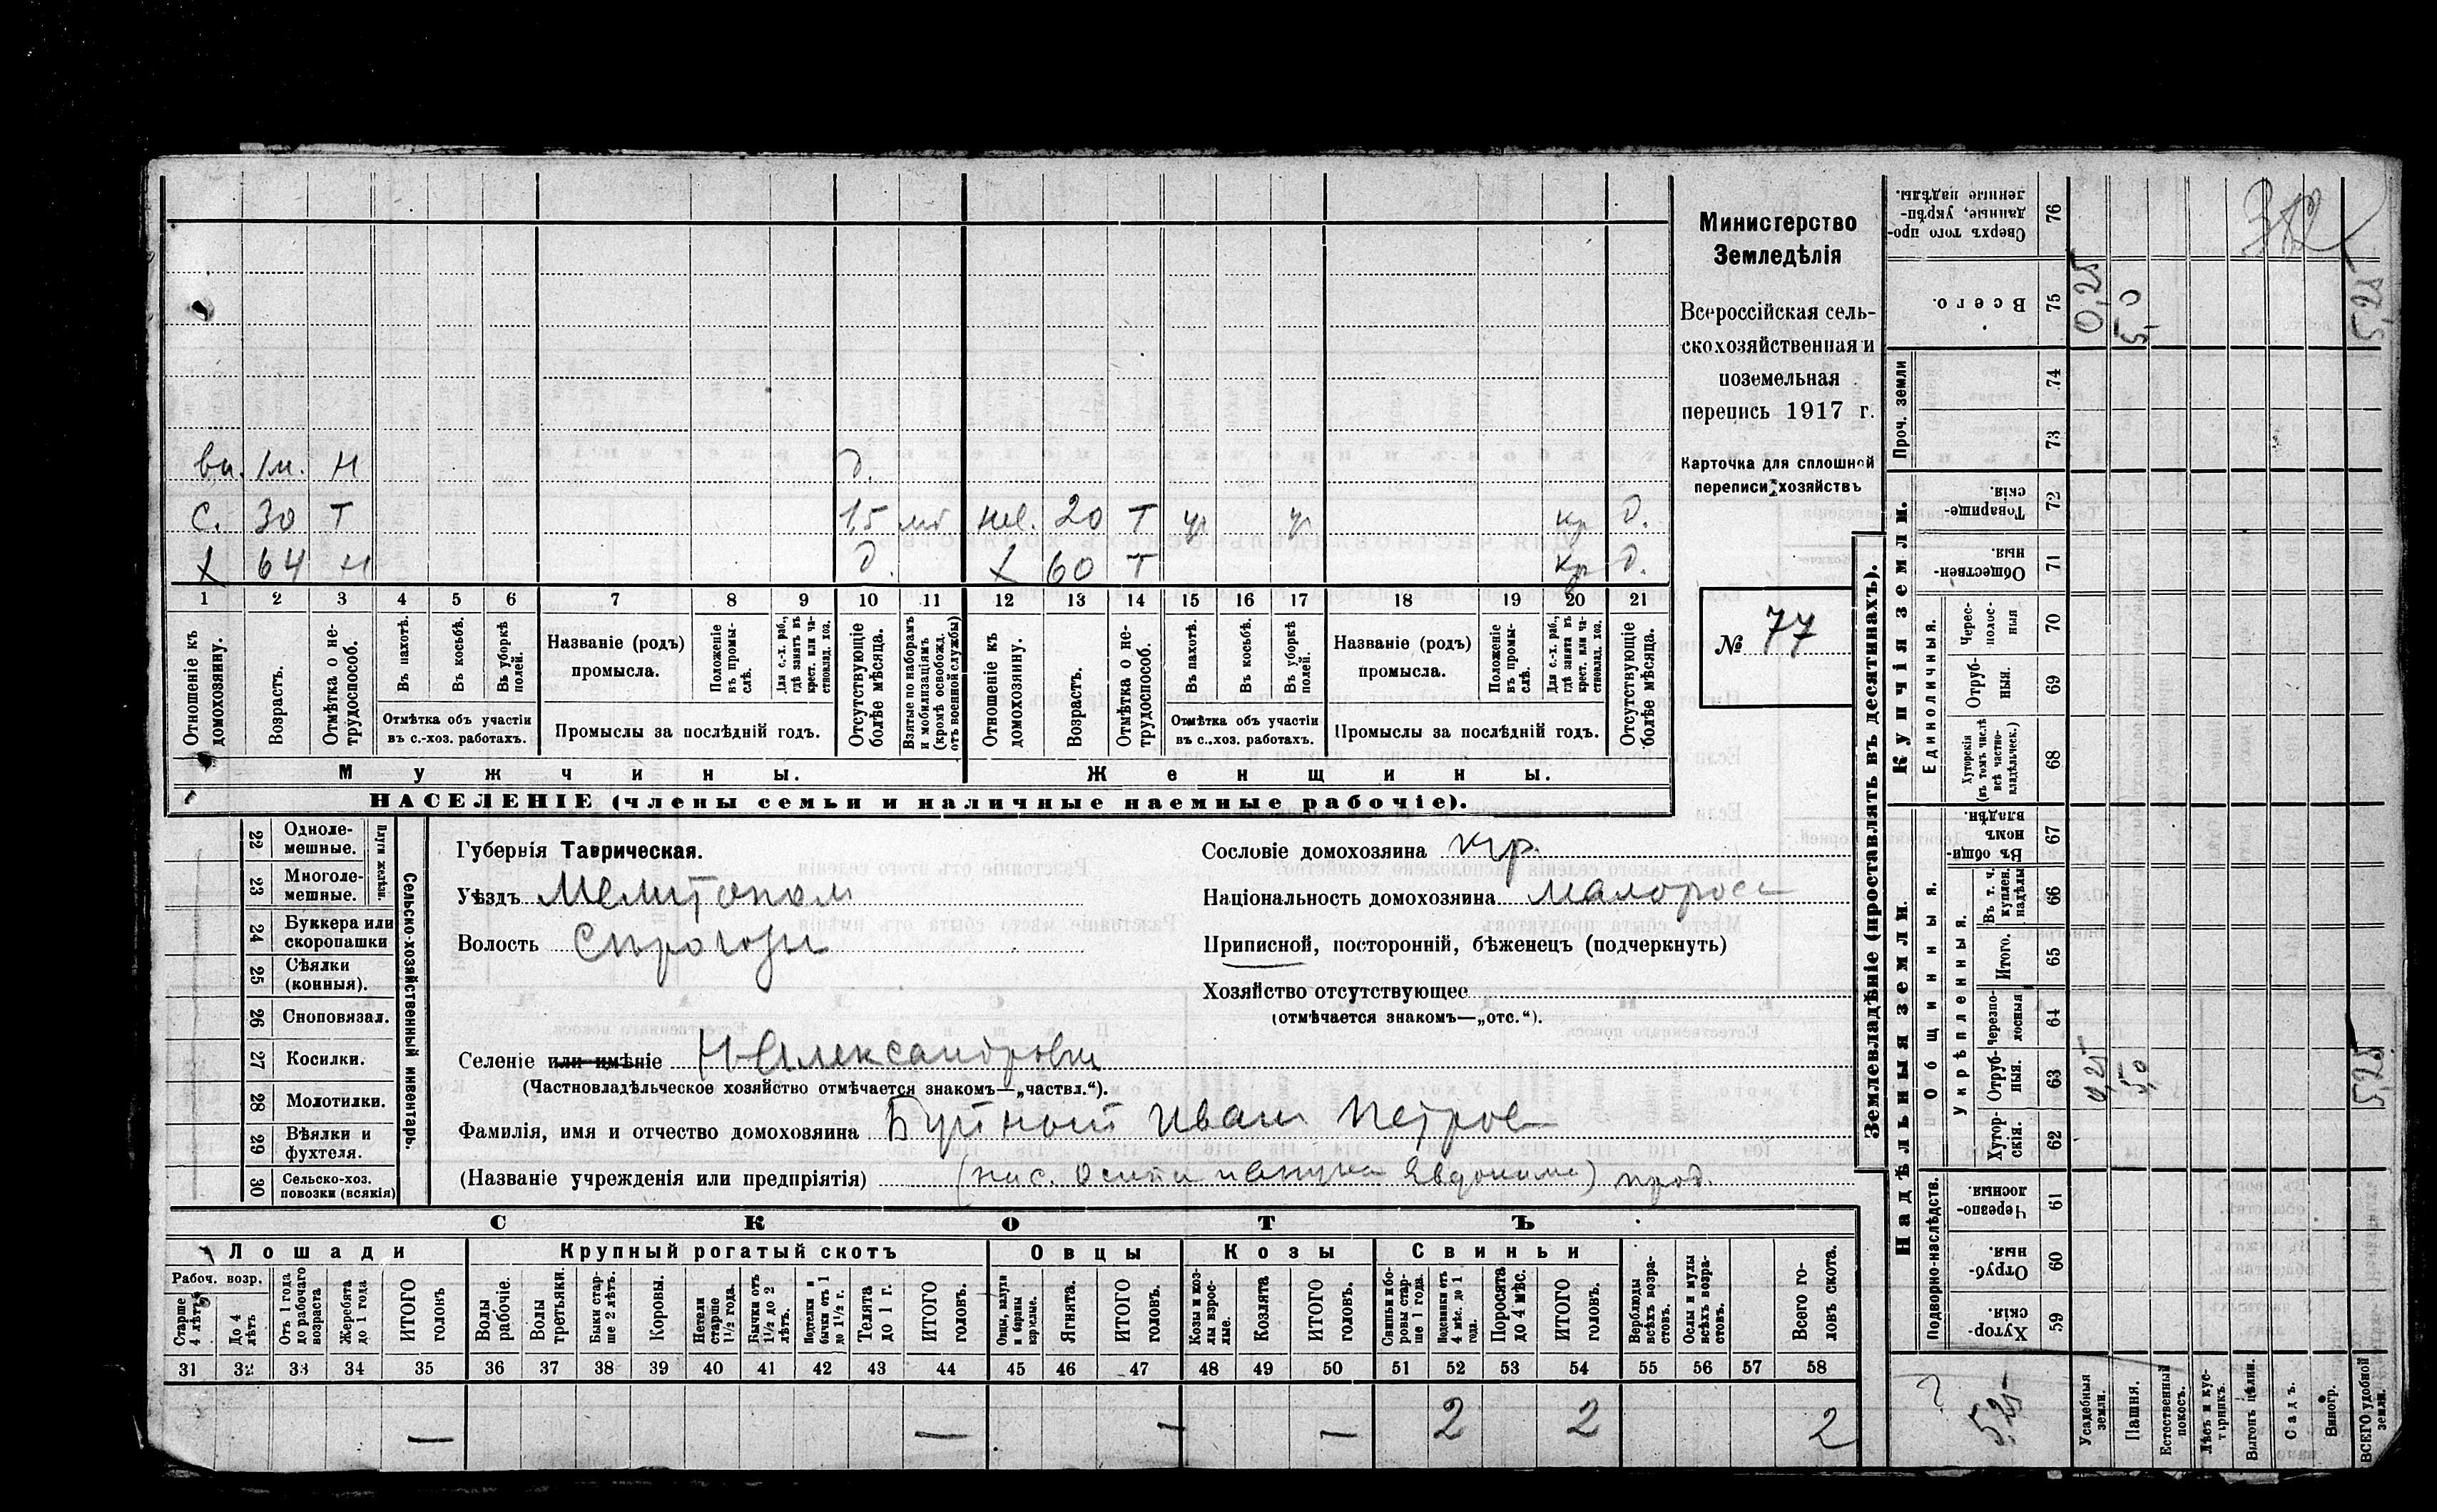 Министерство
Земледѣлія
Всероссійская сель-
скохозяйственная и
поземельная
перепись 1917 г.
Карточка для сплошной
переписи хозяйствъ
№ 77
вн. 1м. Н д.
С. 30 Т 1,5 мб нев. 20 Т у у кр д.
х 64 Н д. х 60 Т кр д.
1 2 3 4 5 6 7 8 9 10 11 12 13 14 15 16 17 18 19 20 21
Отношеніе къ домохозяину.
Возрастъ.
Отмѣтка о не-трудоспособ.
Въ пахотѣ.
Въ косьбѣ.
Въ уборкѣ полей.
Отмѣтка объ участіи
въ с.-хоз. работахъ.
Названіе (родъ)
промысла.
Положеніе въ промы-слѣ.
Для с.-х. раб., гдѣ занятъ въ крест. или ча-стновлад. хоз.
Промыслы за послѣдній годъ.
Отсутствующіе болѣе мѣсяца.
Взятые по наборамъ и мобилизаціямъ (кромѣ освобожд. отъ военной службы)
Отношеніе къ домохозяину.
Возрастъ.
Отмѣтка о не-трудоспособ.
Въ пахотѣ.
Въ косьбѣ.
Въ уборкѣ полей.
Отмѣтка объ участіи
въ с.-хоз. работахъ.
Названіе (родъ)
промысла.
Положеніе въ промы-слѣ.
Для с.-х. раб., гдѣ занятъ въ крест. или ча-стновлад. хоз.
Промыслы за послѣдній годъ.
Отсутствующіе болѣе мѣсяца.
Мужчины. Женщины.
НАСЕЛЕНІЕ (члены семьи и наличные наемные рабочіе).
Сельско-хозяйственный инвентарь.
Плуги желѣзн.
22 Одноле-мешные.
23 Многоле-мешные.
24 Буккера или скоропашки
25 Сѣялки (конныя).
26 Сноповязал.
27 Косилки.
28 Молотилки.
29 Вѣялки и фухтеля.
30 Сельско-хоз. повозки (всякія)
Губернія Таврическая.
Уѣздъ Мелитопол
Волость Сирогозы
Селеніе или имѣніе Н-Александровка
(Частновладѣльческое хозяйство отмѣчается знакомъ—„частвл.“).
Фамилія, имя и отчество домохозяина Бутном Иван Петров
(Названіе учрежденія или предпріятія) Евдокима) прод.
Сословіе домохозяина кр.
Національность домохозяина малоросс
Приписной, посторонній, бѣженецъ (подчеркнуть)
Хозяйство отсутствующее
(отмѣчается знакомъ—„отс.“).
СКОТЪ
Лошади
Рабоч. возр.
Старше 4 лѣтъ
До 4 лѣтъ
Отъ 1 года до рабочаго возраста
Жеребята до 1 года
ИТОГО головъ
Крупный рогатый скотъ
Волы рабочіе.
Волы третьяки.
Быки стар-ше 2 лѣтъ.
Коровы.
Нетели старше 1½ года.
Бычки отъ 1½ до 2 лѣтъ.
Подтелки и бычки отъ 1 до 1½ г.
Телята до 1 г.
ИТОГО головъ.
Овцы
Овцы, валухи и бараны взрослые.
Ягнята.
ИТОГО головъ.
Козы
Козы и коз-лы взрос-лые.
Козлята
ИТОГО головъ.
Свиньи
Свиньи бо-ровы стар-ше 1 года.
Подсвинки отъ 4 мѣс. до 1 года.
Поросята до 4 мѣс.
ИТОГО головъ.
Верблюды всѣхъ возра-стовъ.
Ослы и мулы всѣхъ возра-стовъ.
Всего го-ловъ скота.
31 32 33 34 35 36 37 38 39 40 41 42 43 44 45 46 47 48 49 50 51 52 53 54 55 56 57 58
— — — — 2 2 2
Землевладѣніе (проставлять въ десятинахъ).
Надѣльныя земли.
Подворно-наслѣдств.
Хутор-скія. 59
Отруб-ныя. 60
Черезпо-лосныя 61
Общинныя.
Укрѣпленныя.
Хутор-скія. 62
Отруб-ныя. 63
черезпо-лосныя 64
Итого. 65
Въ т. ч. куплен. надѣлы 66
Въ общин-номъ владѣн. 67
Купчія земли.
Единоличныя.
Хуторскія (въ томъ числѣ всѣ частно-владѣльческ.) 68
Отруб-ныя. 69
Черес-полос-ныя 70
Обществен-ныя. 71
Товарище-скія. 72
Проч. земли
73 74
Всего. 75
Сверхъ того про-данные, укрѣп-ленные надѣлы. 76
? 5,25
Усадебныя земли. 0,25 0,25
Пашня. 5,0 5,0
Естественный покосъ.
Лѣсъ и кус-тарникъ.
Выгонъ цѣлин.
Садъ.
Виногр.
ВСЕГО удобной земли. 5,25 5,25